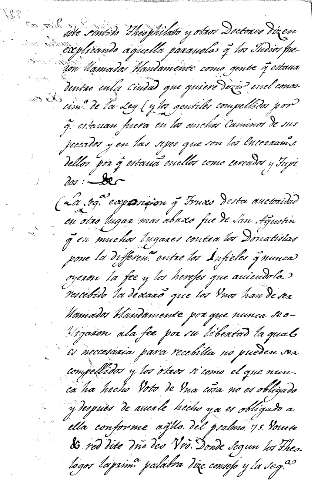 este sentido Theophilato y otros Doctores dizen
explicando aquella paravola q̃ los Judios fue
ron llamados blandamente como gente q̃ estava
dentro en la Ciudad que quiere dezir en el conoci
mien.º de la Ley (y los gentiles compellidos por
q̃ estavan fuera en los anchos Caminos de sus
pecados y en las sepes que son los
dellos por q̃ estavã enellos como cercados y
dos:
(La seg.ª exposicion q̃ Truxe desta autoridad
en otro lugar mas abaxo fue de San Agustin
q̃ en muchos Lugares contra los Donatistas
pone la differen.ª entre los Infieles q̃ nunca
oyeron la fee y los herejes que aviendola
rescebido la dexarõ que los Unos han de ser
llamados blandamente por que nunca se o-
bligaron a la fee por su libertad la qual
es necesaria para recebilla no pueden ser
compellidos y los otros si como el que nun-
ca ha hecho Voto de Una cosa no es obligado
y después de averle hecho ya es obligado a
ella conforme aq̃llo del psalmo 75 Vovete
& reddite dño deo Vrõ. Donde segun los Theo
logos la prim.ª palabra dize consejo y la seg.ª